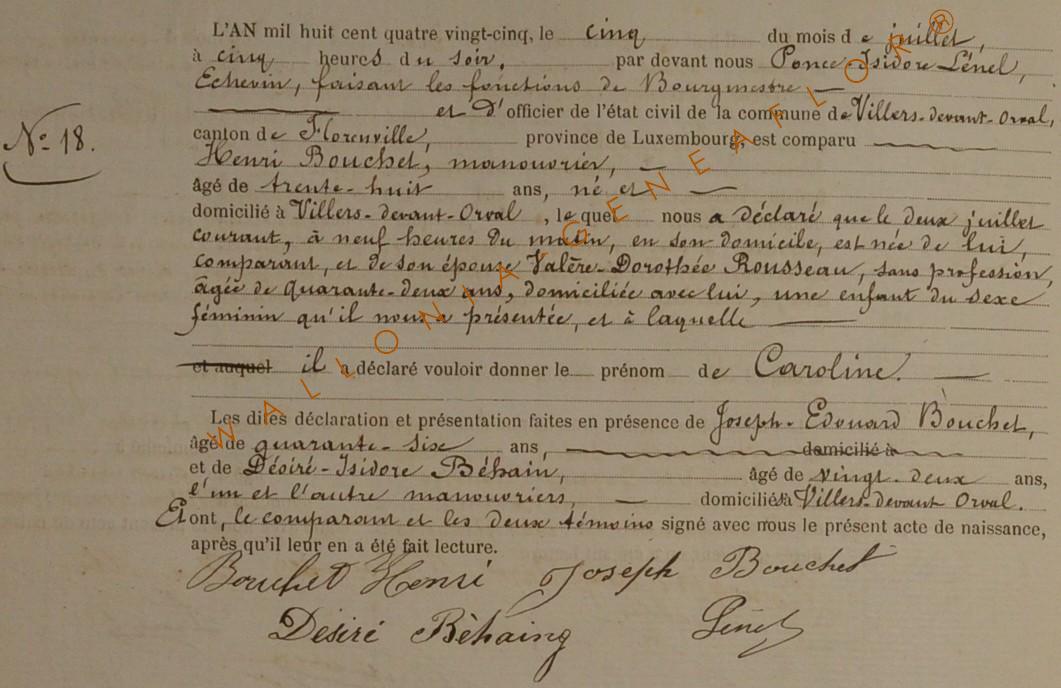 L'AN mil huit cent quatre vingt-cinq, le cinq du mois de juillet,
à cinq heures du soir, par devant nous Ponce-Isidore Lénel,
Echevin, faisant les fonctions de Bourgmestre —
et d'officier de l'état civil de la commune de Villers-devant-Orval,
N° 18.
canton de Florenville, province de Luxembourg, est comparu
Henri Bouchet, manouvrier, —
âgé de trente-huit ans, né et —
domicilié à Villers-devant-Orval, lequel nous a déclaré que le deux juillet
courant, à neuf heures du matin, en son domicile, est née de lui,
comparant, et de son épouse Valère-Dorothée Rousseau, sans profession,
âgée de quarante-deux ans, domiciliée avec lui, une enfant du sexe
féminin qu'il nous a présentée, et à laquelle —
et auquel il a déclaré vouloir donner le prénom de Caroline. —
Les dites déclaration et présentation faites en présence de Joseph-Edouard Bouchet,
âgé de quarante-six ans, domicilié à
et de Désiré-Isidore Béhain, âgé de vingt-deux ans,
l'un et l'autre manouvriers, — domiciliés à Villers-devant Orval.
Et ont, le comparant et les deux témoins signé avec nous le présent acte de naissance,
après qu'il leur en a été fait lecture.
Bouchet Henri Joseph Bouchet
Désiré Bèhaing Lénel
WALLONIA GENEAFLOK ®